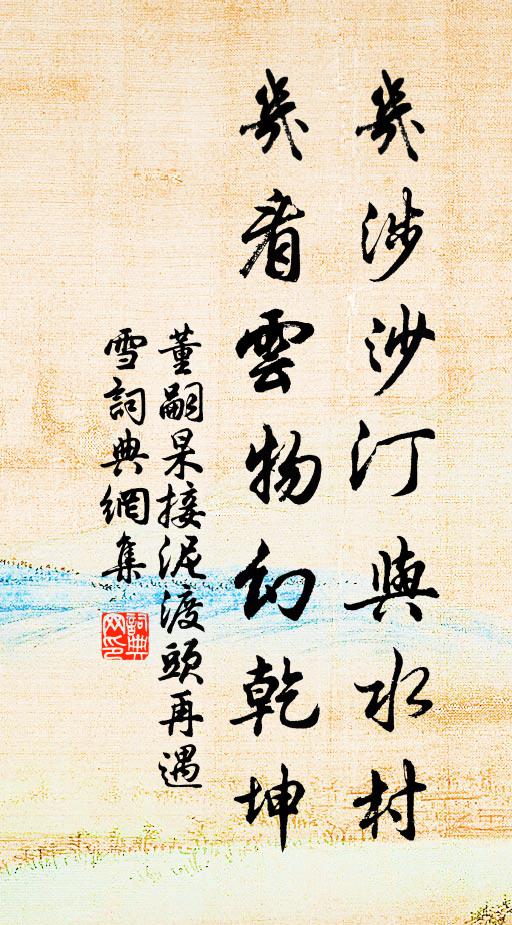 幾涉沙汀與水村
幾看雲物幻乾坤
董嗣杲接泥渡頭再遇
雪詞典網集
詞典
网印